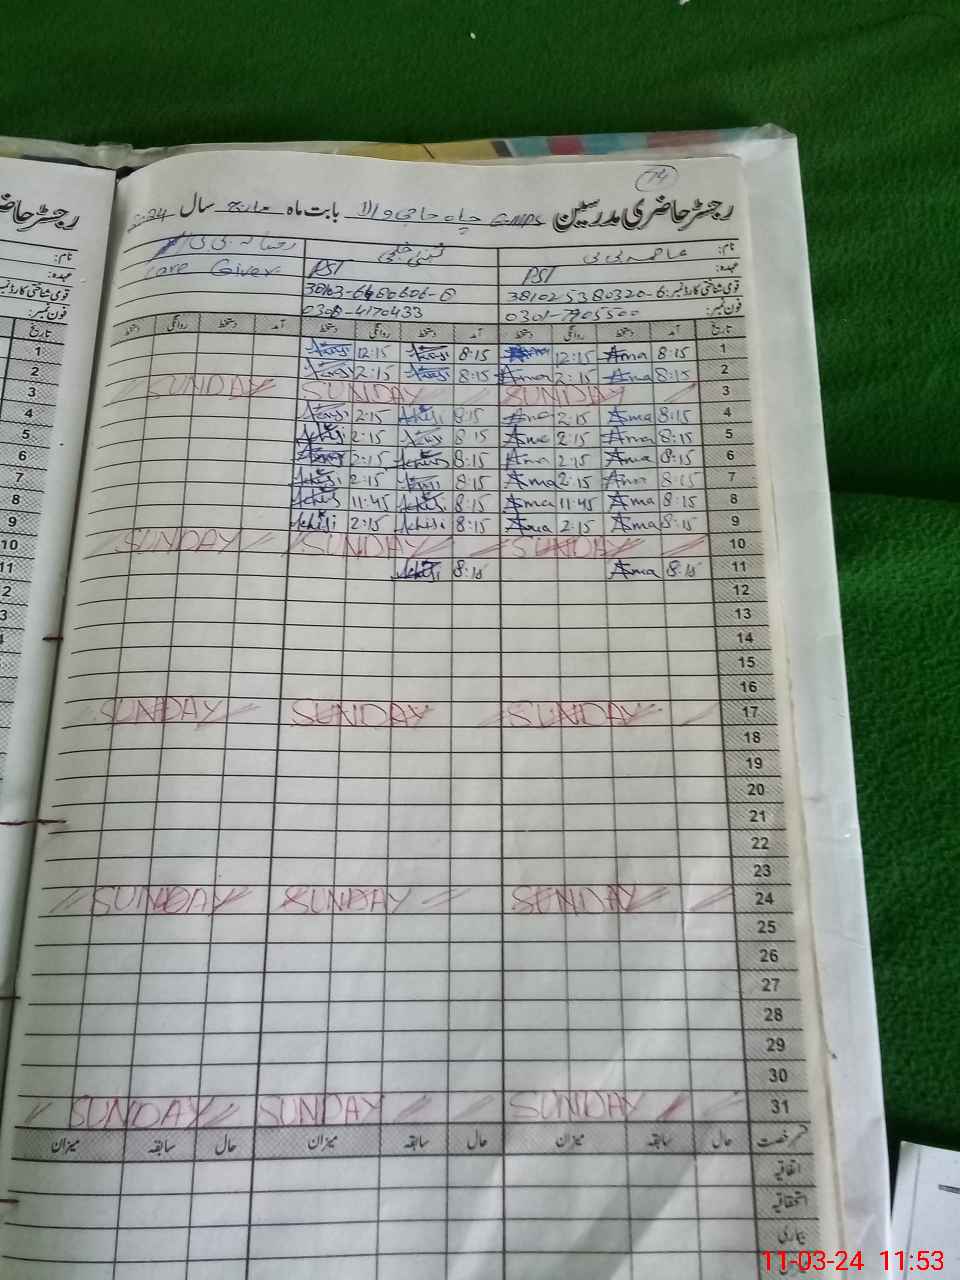 14
رجسٹر حاضری مدرسین GMPS چاہ حاجی والا بابت ماہ مارچ سال 2024
رجسٹر حاضری
نام: عاصمہ بی بی رضیانہ بی بی
عہدہ: PST PST Care Giver
قومی شناختی کارڈ نمبر: 381025380320-6
فون نمبر: 0301-7905500 0308-4170433
تاریخ آمد دستخط روانگی دستخط آمد دستخط روانگی دستخط آمد دستخط روانگی دستخط
1 8:15 Ama 12:15 8:15 12:15
2 8:15 Ama 2:15 Ama 8:15 2:15
3 SUNDAY SUNDAY SUNDAY
4 8:15 Ama 2:15 Ama 8:15 2:15
5 8:15 Ama 2:15 Ama 8:15 2:15
6 8:15 Ama 2:15 Ama 8:15 2:15
7 8:15 Ama 2:15 Ama 8:15 2:15
8 8:15 Ama 11:45 Ama 8:15 11:45
9 8:15 Ama 2:15 Ama 8:15 2:15
10 SUNDAY SUNDAY SUNDAY
11 8:15 Ama 8:15
12
13
14
15
16
17 SUNDAY SUNDAY SUNDAY
18
19
20
21
22
23
24 SUNDAY SUNDAY SUNDAY
25
26
27
28
29
30
31 SUNDAY SUNDAY SUNDAY
قسم رخصت حال سابقہ میزان حال سابقہ میزان حال سابقہ میزان
اتفاقیہ
استحقاقیہ
بیماری
11-03-24 11:53